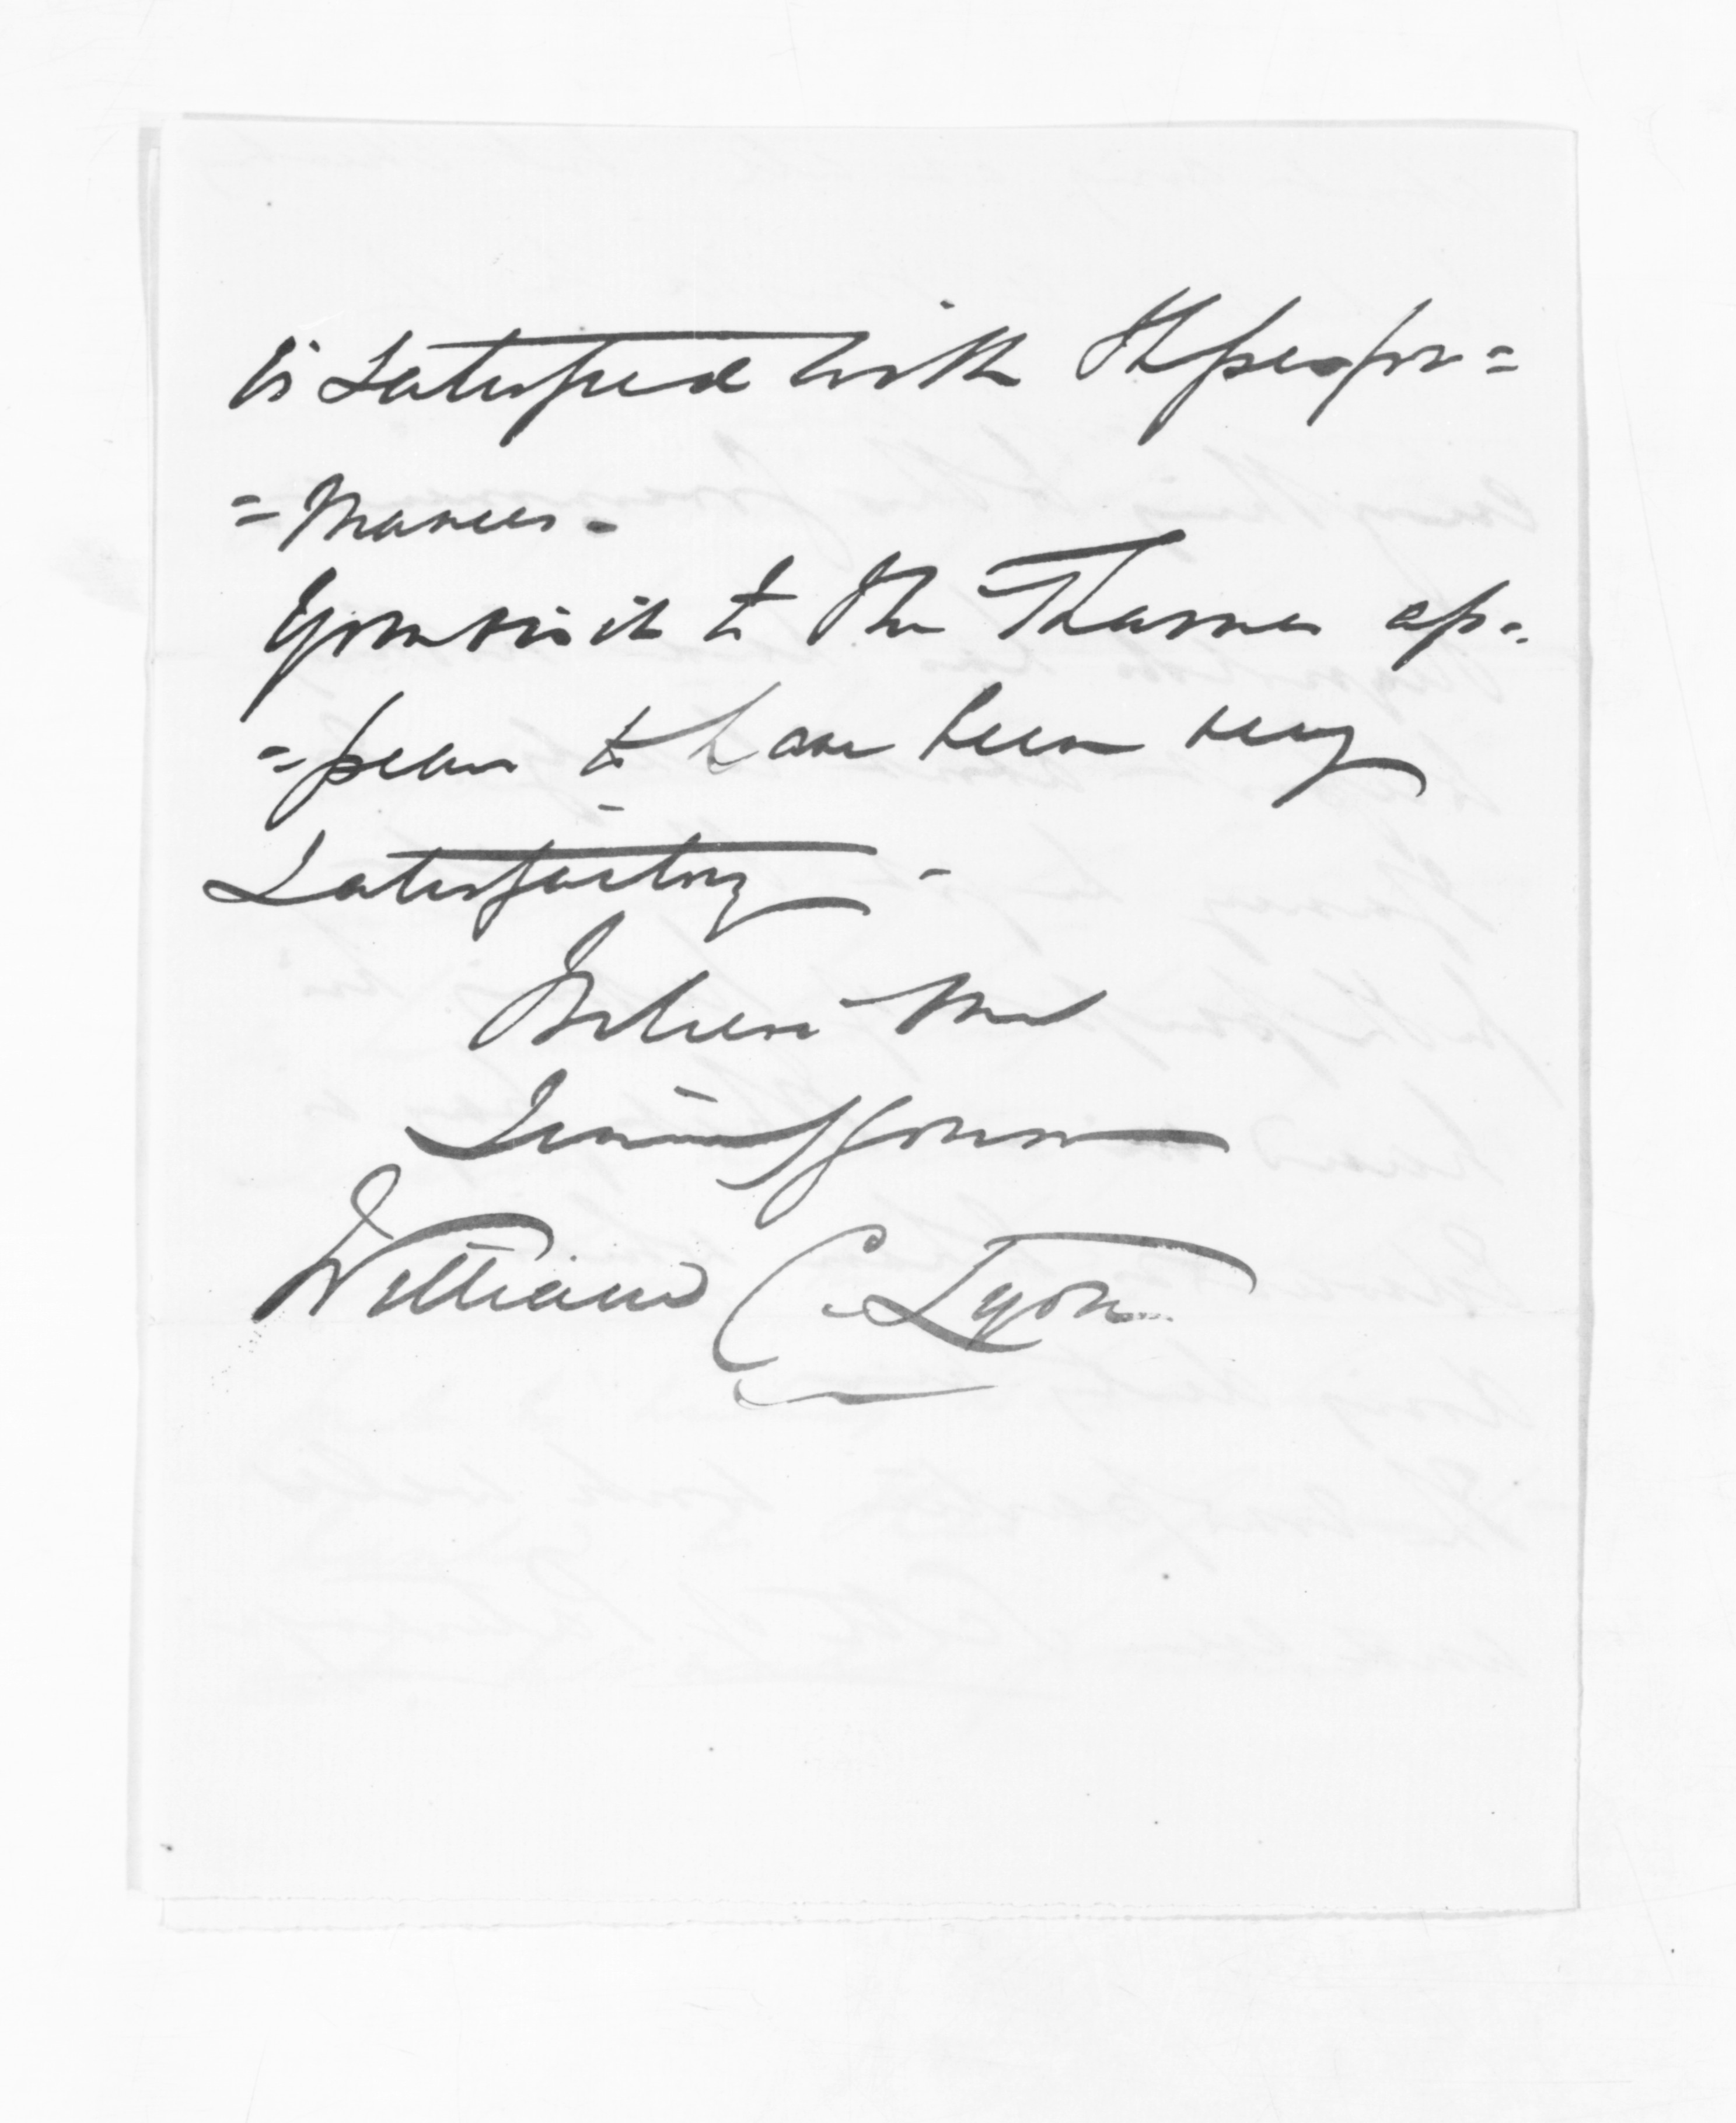 is satisfied with the perfor=
=mances.
Your visit to the Thames ap=
=pears to have been very
satisfactory -
Believe me
Sincerely Yours
William C. Lyon